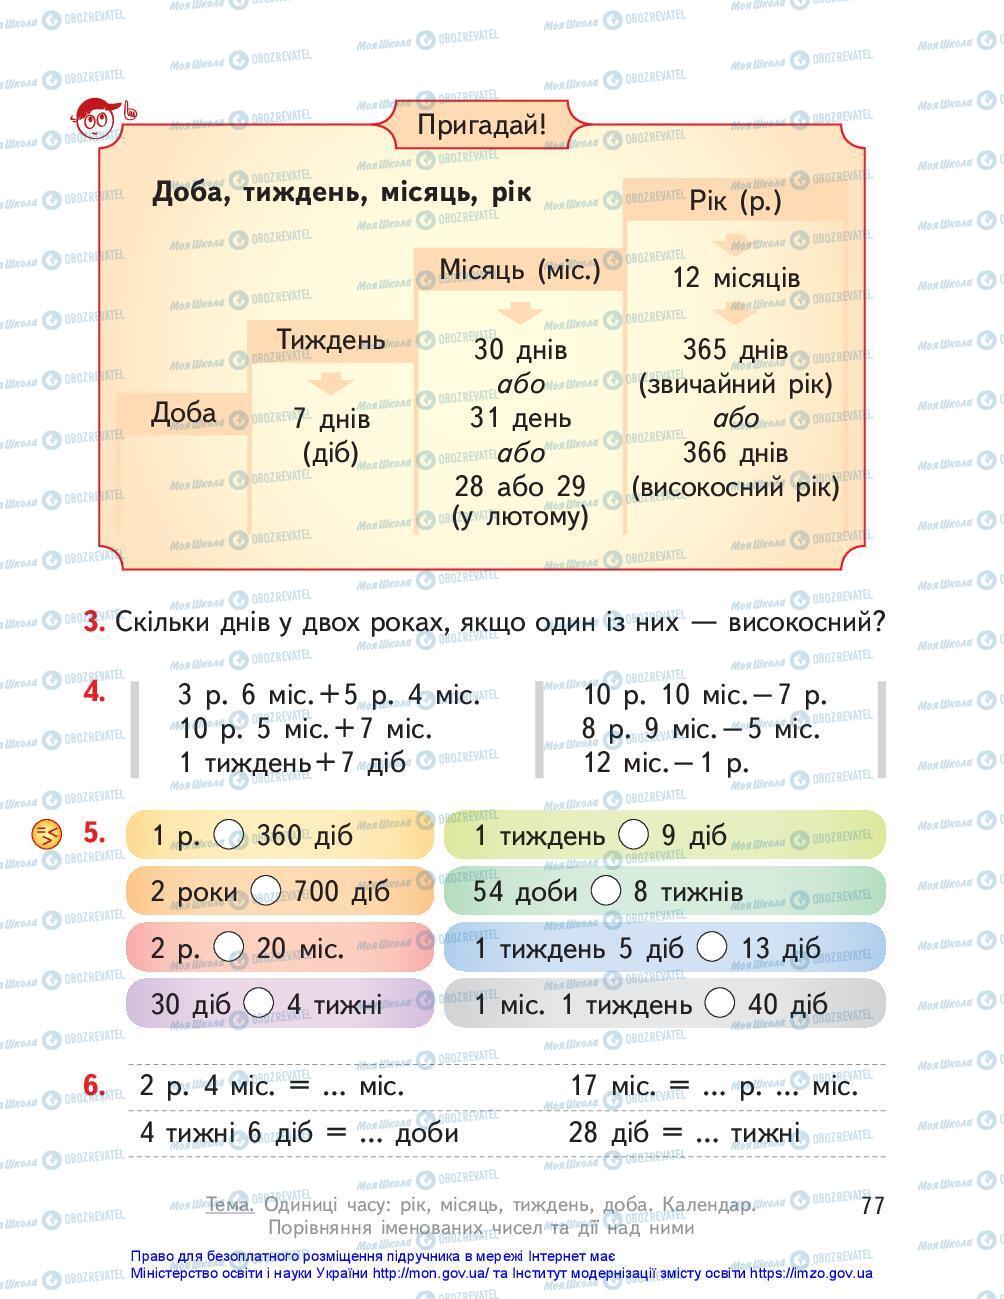 Пригадай!
Доба, тиждень, місяць, рік
Доба
Тиждень
7 днів
(діб)
Місяць (міс.)
30 днів
або
31 день
або
28 або 29
(у лютому)
Рік (р.)
12 місяців
365 днів
(звичайний рік)
або
366 днів
(високосний рік)
3. Скільки днів у двох роках, якщо один із них — високосний?
4. 3 р. 6 міс. + 5 р. 4 міс.
10 р. 5 міс. + 7 міс.
1 тиждень + 7 діб
10 р. 10 міс. – 7 р.
8 р. 9 міс. – 5 міс.
12 міс. – 1 р.
5. 1 р. ◯ 360 діб
1 тиждень ◯ 9 діб
2 роки ◯ 700 діб
54 доби ◯ 8 тижнів
2 р. ◯ 20 міс.
1 тиждень 5 діб ◯ 13 діб
30 діб ◯ 4 тижні
1 міс. 1 тиждень ◯ 40 діб
6. 2 р. 4 міс. = ... міс.
17 міс. = ... р. ... міс.
4 тижні 6 діб = ... доби
28 діб = ... тижні
Тема. Одиниці часу: рік, місяць, тиждень, доба. Календар.
Порівняння іменованих чисел та дії над ними
77
Право для безоплатного розміщення підручника в мережі Інтернет має
Міністерство освіти і науки України http://mon.gov.ua/ та Інститут модернізації змісту освіти https://imzo.gov.ua
МояШкола OBOZREVATEL